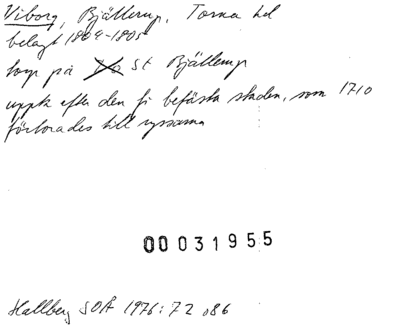 Viborg, Bjällerup, Torna hd
belagt 1804-1805
torp på St Bjällerup
uppk efter den fi befästa staden, som 1710
förlorades till ryssarna
00031955
Hallberg SOÅ 1976:72, 86